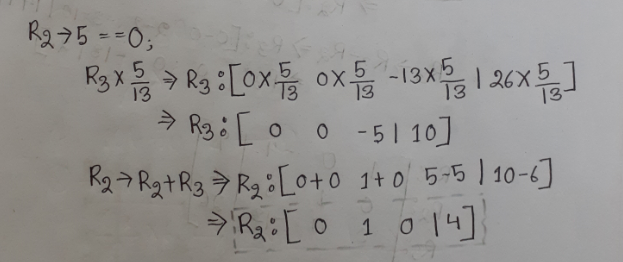 R₂→5 ==0;
R₃ × 5/13 ⇒ R₃ : [0×5/13 0×5/13 -13×5/13 | 26×5/13]
⇒ R₃ : [ 0 0 -5 | 10]
R₂→R₂+R₃ ⇒ R₂ : [0+0 1+0 5-5 | 10-6]
⇒ R₂ : [ 0 1 0 | 4]